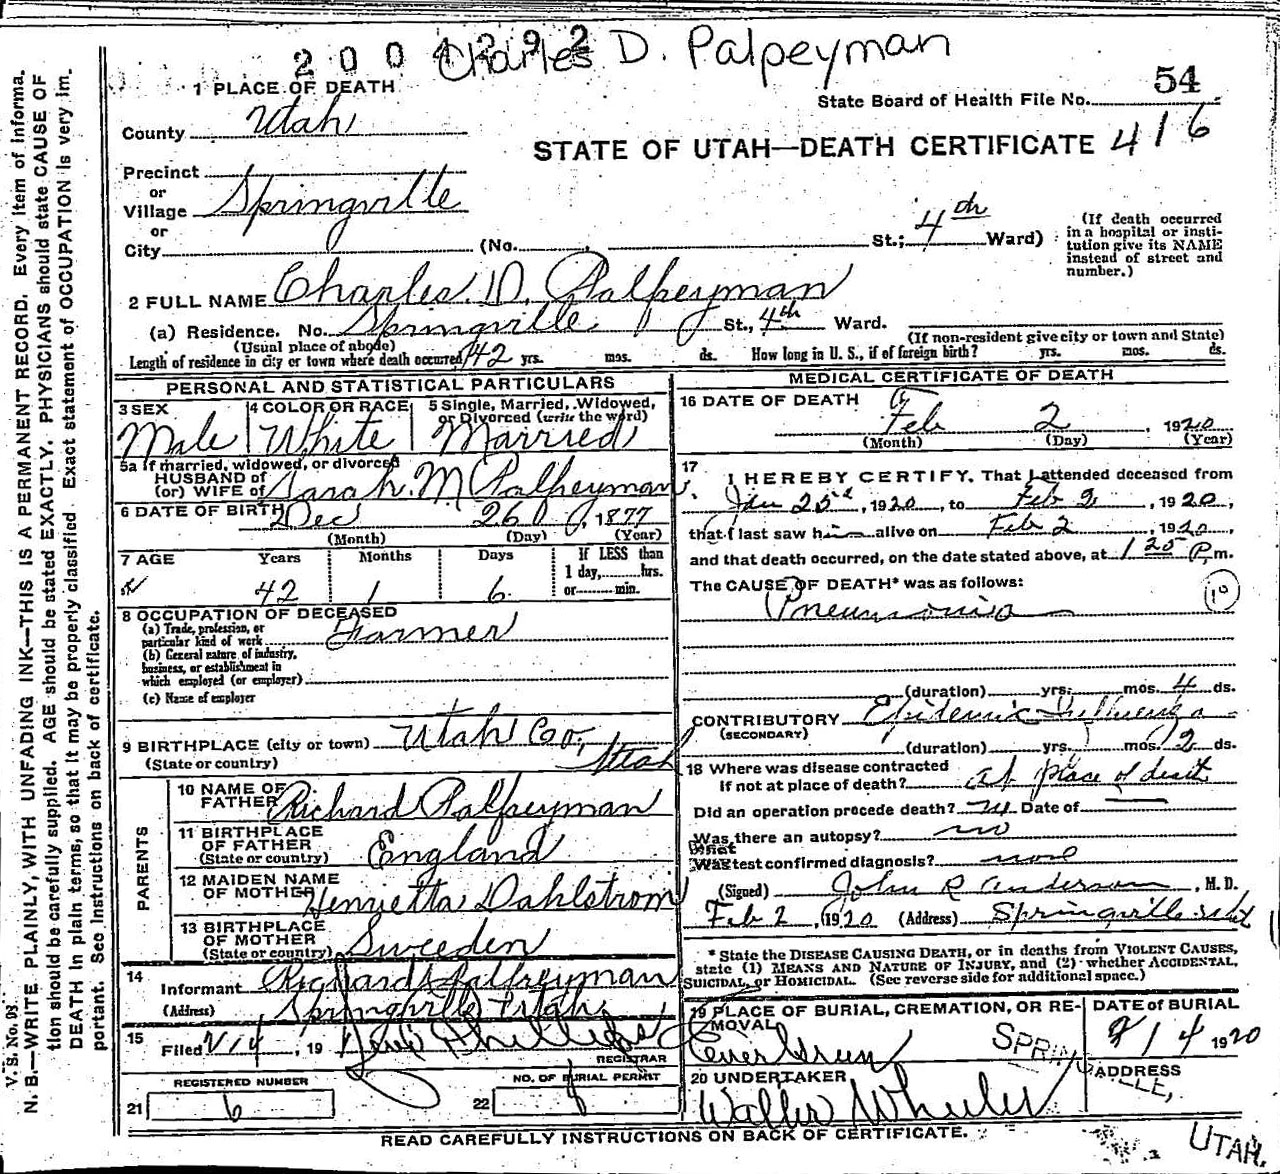 2004292 Charles D. Palpeyman
1 PLACE OF DEATH
54
State Board of Health File No.
County Utah
STATE OF UTAH—DEATH CERTIFICATE 416
Precinct
or
Village Springville
or
City (No. St.; 4th Ward)
(If death occurred in a hospital or insti-
tution give its NAME
instead of street and
number.)
2 FULL NAME Charles D. Palfreyman
(a) Residence. No. Springville St., 4th Ward.
(Usual place of abode) (If non-resident give city or town and State)
Length of residence in city or town where death occurred 42 yrs. mos. ds. How long in U. S., if of foreign birth? yrs. mos. ds.
PERSONAL AND STATISTICAL PARTICULARS
3 SEX Male
4 COLOR OR RACE White
5 Single, Married, Widowed,
or Divorced (write the word)
Married
5a If married, widowed, or divorced
HUSBAND of
(or) WIFE of Sarah M Palfreyman
6 DATE OF BIRTH Dec 26, 1877
(Month) (Day) (Year)
7 AGE Years Months Days If LESS than
1 day, hrs.
or min.
42 1 6
8 OCCUPATION OF DECEASED
(a) Trade, profession, or
particular kind of work Farmer
(b) General nature of industry,
business, or establishment in
which employed (or employer)
(c) Name of employer
9 BIRTHPLACE (city or town) Utah Co,
(State or country) Utah
PARENTS
10 NAME OF
FATHER Richard Palfreyman
11 BIRTHPLACE
OF FATHER
(State or country) England
12 MAIDEN NAME
OF MOTHER Henrietta Dahlstrom
13 BIRTHPLACE
OF MOTHER
(State or country) Sweeden
14
Informant Richard Palfreyman
(Address) Springville Utah
15
Filed 2/14, 19
REGISTRAR
REGISTERED NUMBER
21 6
NO. OF BURIAL PERMIT
22
MEDICAL CERTIFICATE OF DEATH
16 DATE OF DEATH
Feb 2, 1920
(Month) (Day) (Year)
17
I HEREBY CERTIFY, That I attended deceased from
Jan 25, 1920, to Feb 2, 1920,
that I last saw him alive on Feb 2, 1920,
and that death occurred, on the date stated above, at 1 25 P.m.
The CAUSE OF DEATH* was as follows:
Pneumonia
10
(duration) yrs. mos. 4 ds.
CONTRIBUTORY Epidemic Influenza
(SECONDARY)
(duration) yrs. mos. 2 ds.
18 Where was disease contracted
If not at place of death? at place of deat
Did an operation precede death? Date of
Was there an autopsy? no
What test confirmed diagnosis? none
(Signed) John R Anderson, M.D.
Feb 2, 1920 (Address) Springville
* State the DISEASE CAUSING DEATH, or in deaths from VIOLENT CAUSES,
state (1) MEANS AND NATURE OF INJURY, and (2) whether ACCIDENTAL,
SUICIDAL, or HOMICIDAL. (See reverse side for additional space.)
19 PLACE OF BURIAL, CREMATION, OR RE-
MOVAL
Evergreen
DATE of BURIAL
2/4 1920
SPRINGVILLE,
UTAH.
20 UNDERTAKER
Walter Wheeler
ADDRESS
READ CAREFULLY INSTRUCTIONS ON BACK OF CERTIFICATE.
V. S. No. 05
N. B.—WRITE PLAINLY, WITH UNFADING INK—THIS IS A PERMANENT RECORD. Every item of informa-
tion should be carefully supplied. AGE should be stated EXACTLY. PHYSICIANS should state CAUSE OF
DEATH in plain terms, so that it may be properly classified. Exact statement of OCCUPATION is very im-
portant. See Instructions on back of certificate.